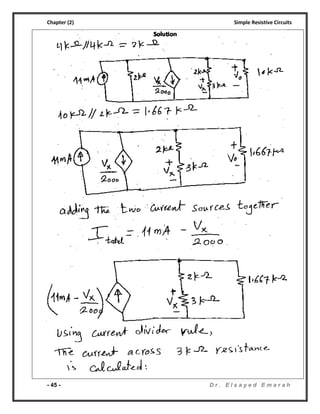 Chapter (2) Simple Resistive Circuits
Solution
4kΩ//4kΩ = 2kΩ
11mA 2kΩ Vx/2000 2kΩ + Vx - 3kΩ + Vo - 10kΩ
10kΩ // 2kΩ = 1.667 kΩ
11mA Vx/2000 2kΩ + Vx - 3kΩ + Vo - 1.667kΩ
adding the two current sources together
I total = 11mA - Vx/2000
(11mA - Vx/2000) 2kΩ + Vx - 3kΩ 1.667kΩ
Using current divider rule,
The current across 3kΩ resistance
is calculated:
- 45 - Dr. Elsayed Emarah